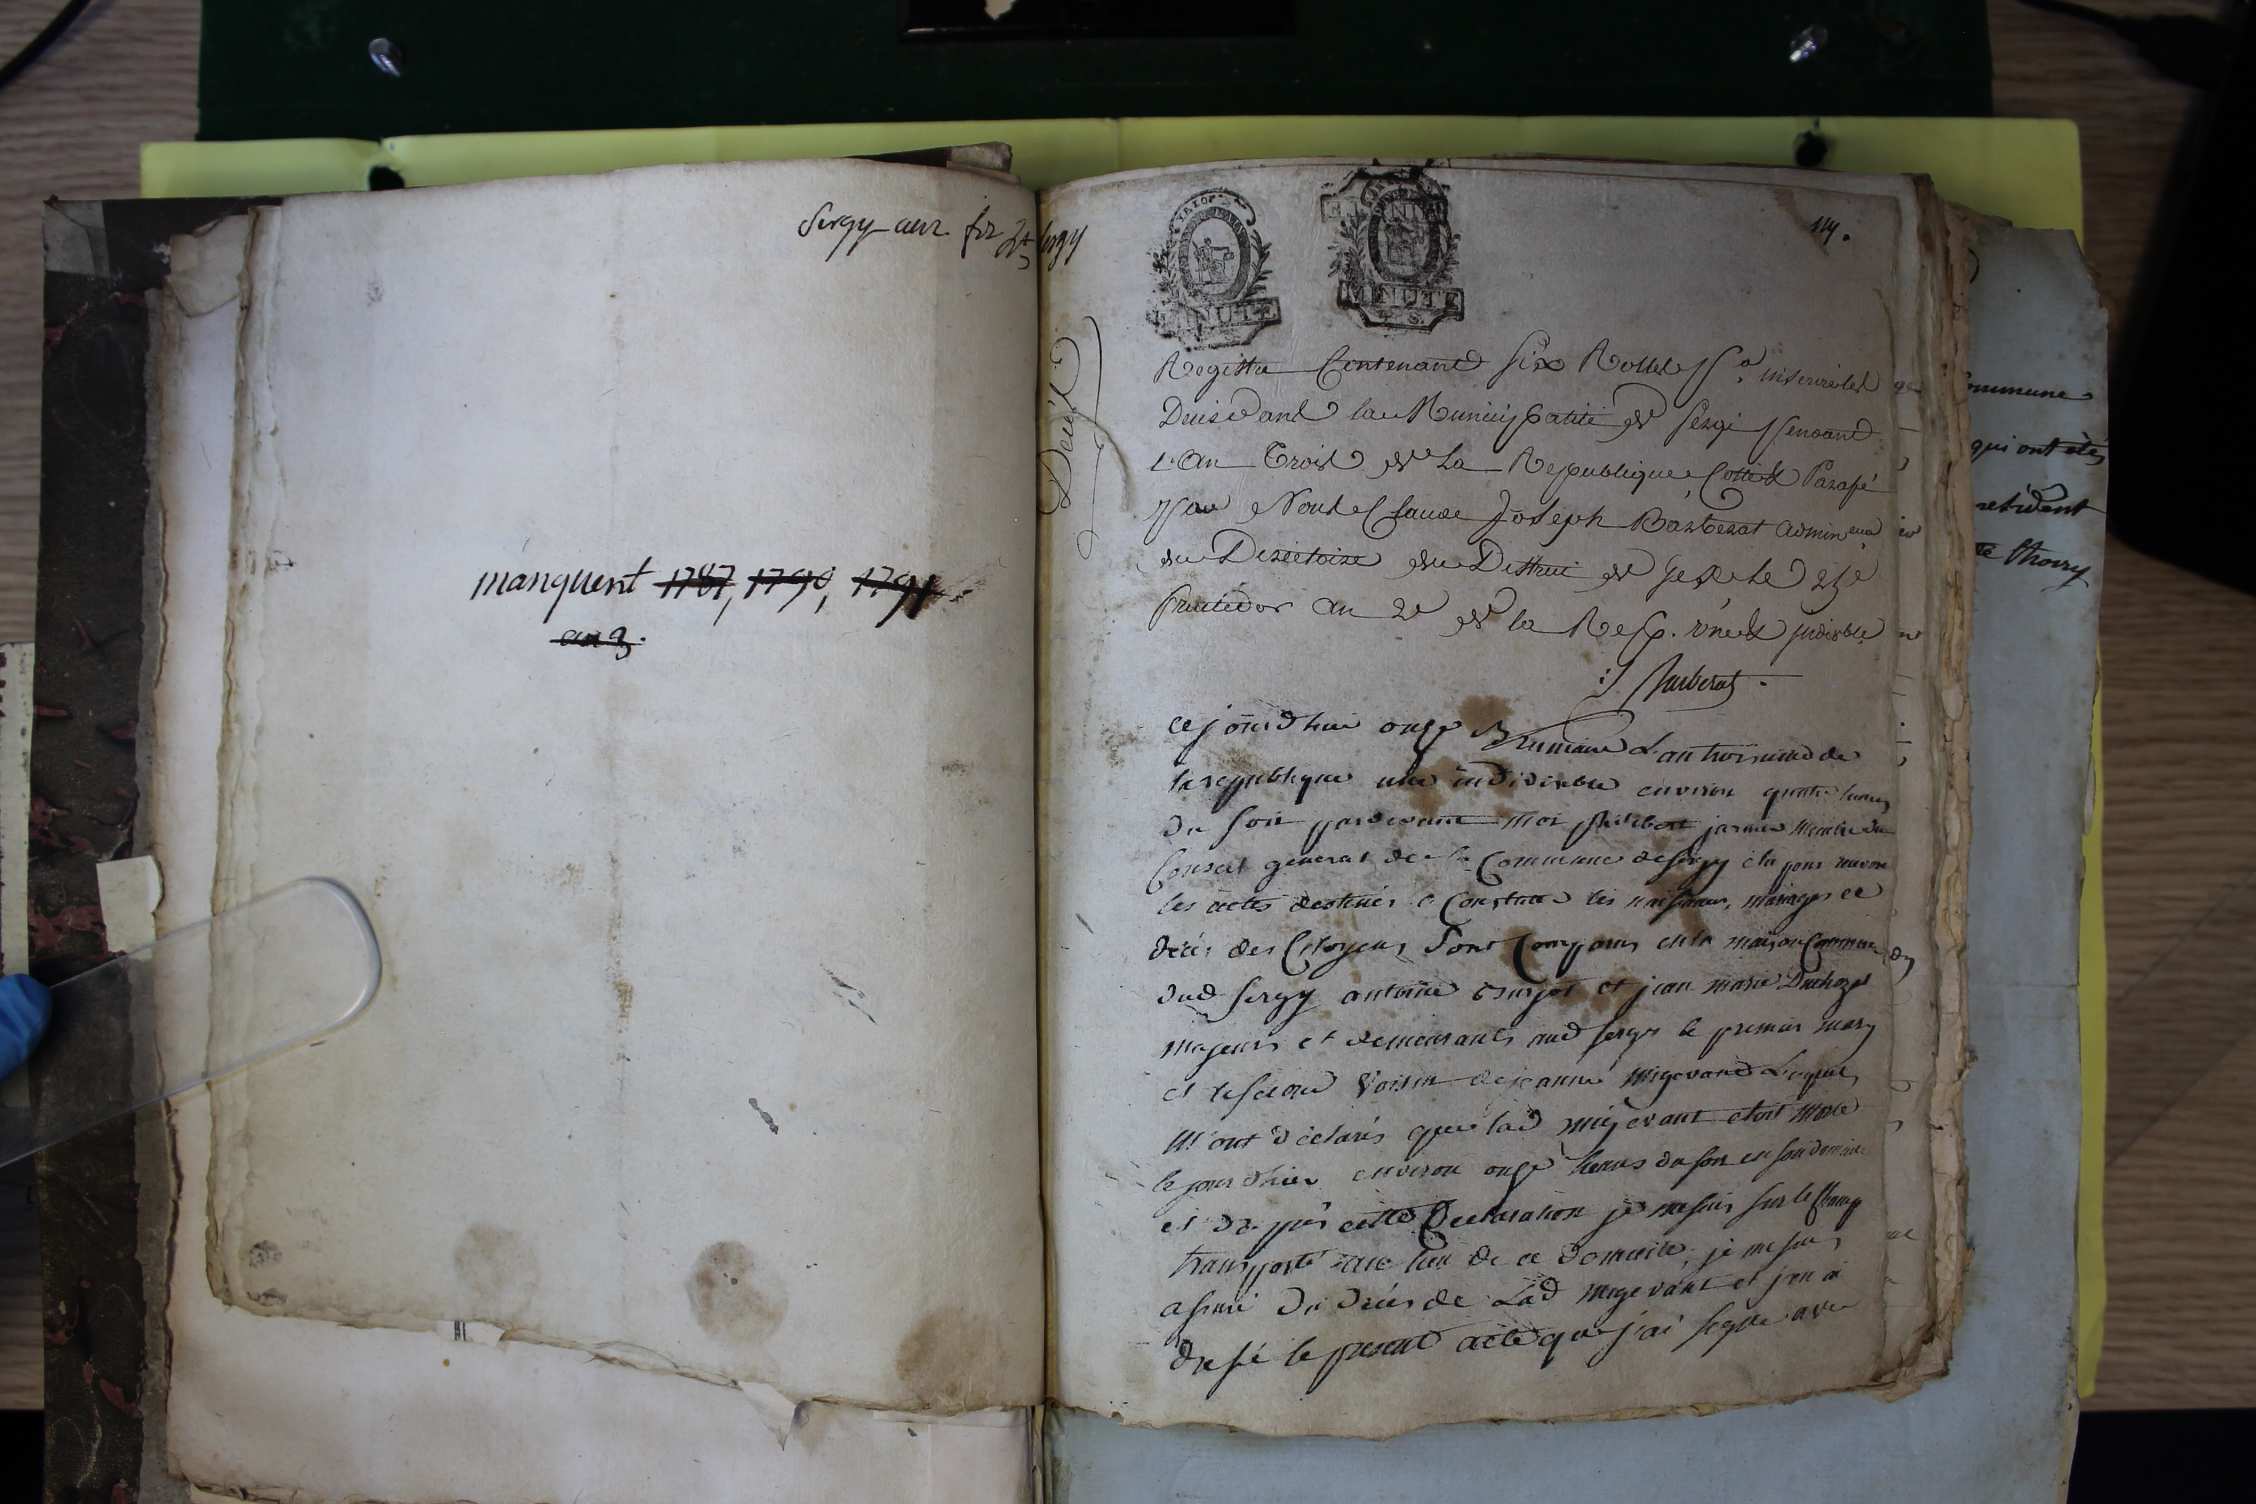 Sergy an 2 Sergy
manquent 1787, 1790, 1791
an 3.
114.
MINUTE
MINUTE
Decès
Registre Contenant six Rollets pr. inscrire les
Décès dans la Municipalité de Sergi pendant
l'an Trois de La Republique Cotté & Parafé
par Nous Claude Joseph Barberat admin
du Directoire du District de Gex le
fructidor an 2e de la Rep. une & indivisble
Barberat
Cejourdhui onze Brumaire L'an troisieme de
la republique une indivisible environ quatre heures
du soir pardevant moi philibert membre du
Conseil general de la Commune de Sergy élu pour
les actes destinés a Constater les naissances, mariages et
décès des Citoyens Sont Comparus en la maison Commune
dud Sergy antoine et jean marie Duchoze
majeurs et demeurants aud Sergy le premier mary
et le second Voisin de jeanne migevand Lesquels
M'ont déclarés que lad migevant etoit morte
le jour dhier environ onze heures du soir en son domicile
et d'après cette Declaration je me suis sur le Champ
transporté au lieu de ce domicile, je me suis
assuré du décès de Lad migevant et j'en ai
dressé le present acte que j'ai signé avec
ommune
qui ont étés
resident
Thoiry